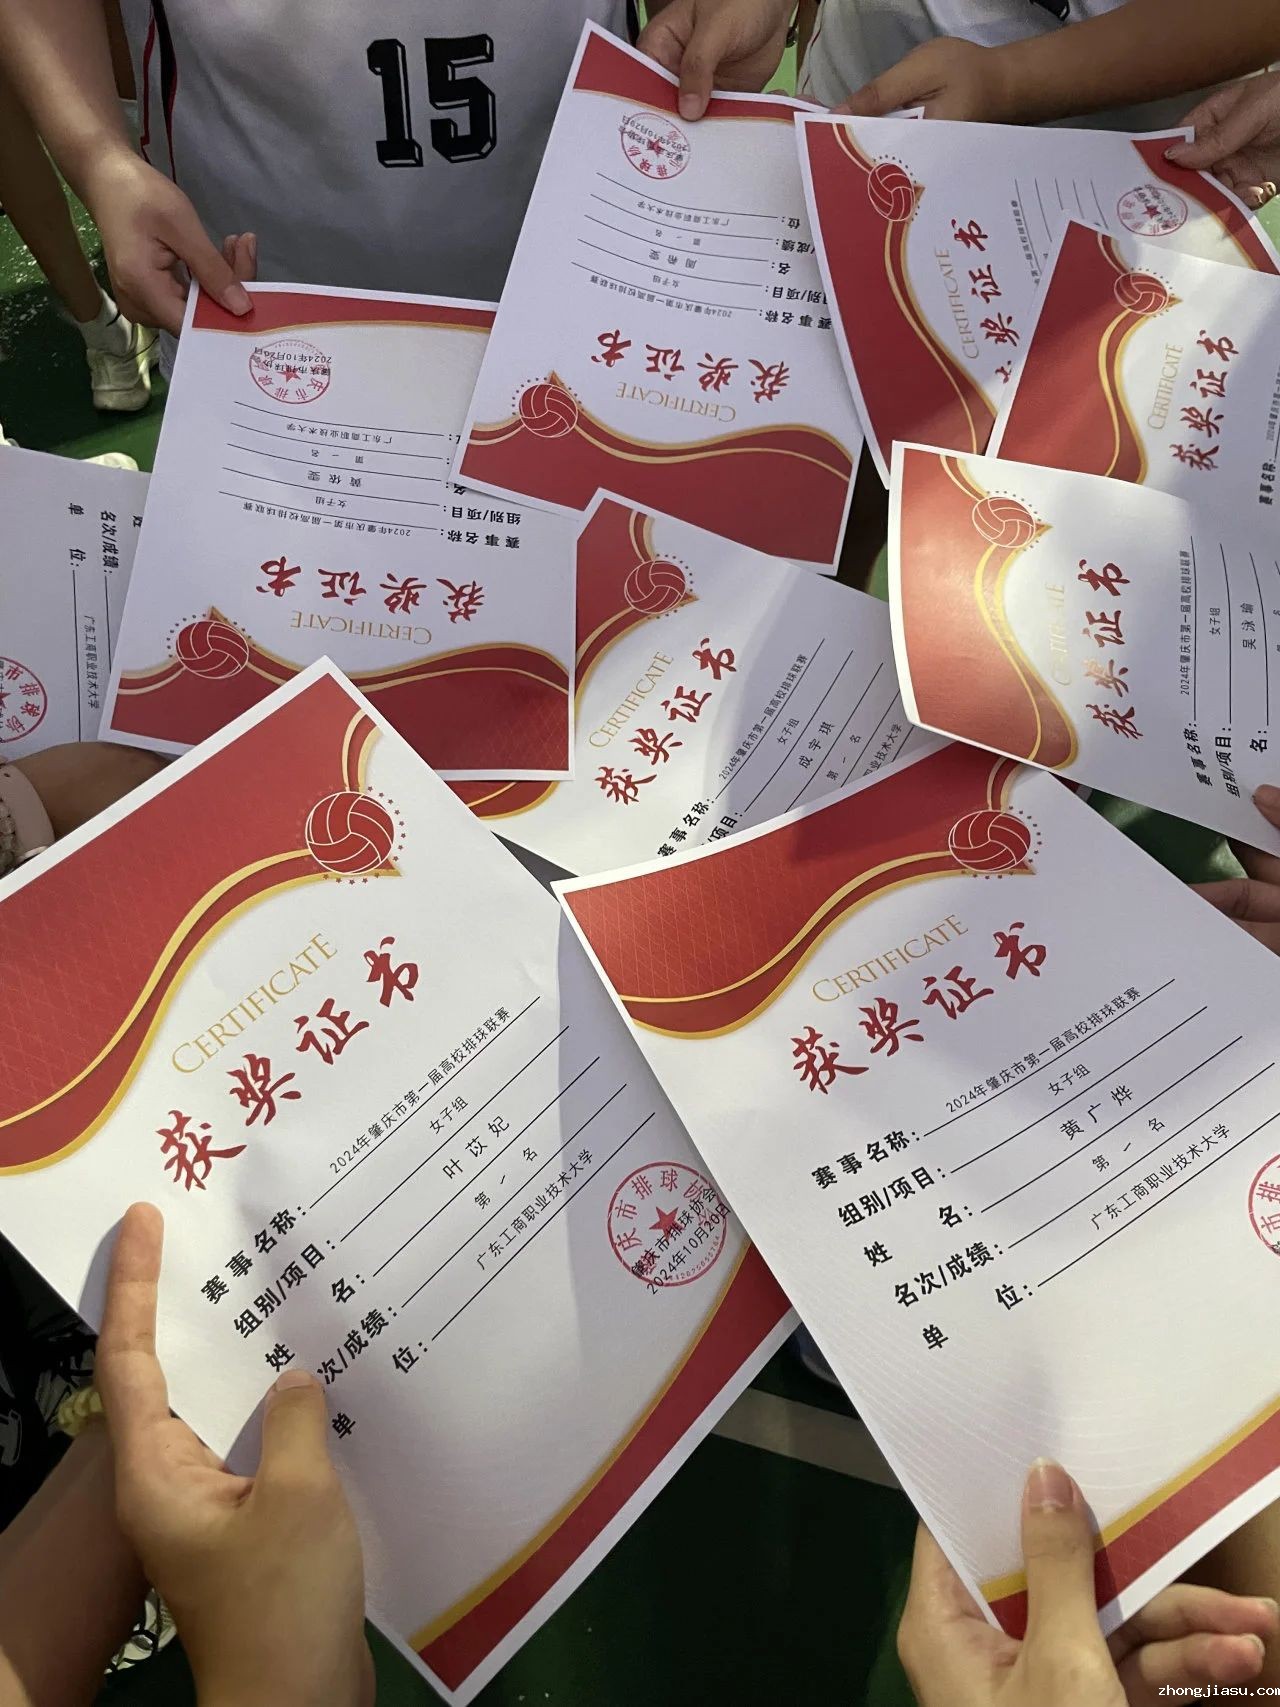 15
肇庆市排球协会
2024年10月20日
广东工商职业技术大学
第一名
周
女子组
2024年肇庆市第一届高校排球联赛
位：
名：
组别/项目：
赛事名称：
获奖证书
CERTIFICATE
CERTIFICATE
奖证书
CERTIFICATE
获奖证书
赛事名称：
肇庆市排球协
2024年10月20日
广东工商职业技术大学
第一名
黄依雯
女子组
2024年肇庆市第一届高校排球联赛
组别/项目：
赛事名称：
获奖证书
CERTIFICATE
名次/成绩：
单位：
广东工商职业技术大学
CERTIFICATE
获奖证书
赛事名称：
2024年肇庆市第一届高校排球联赛
女子组
成宇琪
第一名
职业技术大学
CERTIFICATE
获奖证书
赛事名称：
2024年肇庆市第一届高校排球联赛
组别/项目：
女子组
名：
吴泳瑜
CERTIFICATE
获奖证书
赛事名称：
2024年肇庆市第一届高校排球联赛
组别/项目：
女子组
姓名：
叶苡妃
次/成绩：
第一名
单位：
广东工商职业技术大学
庆市排球协
肇庆市排球协会
2024年10月20日
CERTIFICATE
获奖证书
赛事名称：
2024年肇庆市第一届高校排球联赛
组别/项目：
女子组
姓名：
黄广烨
名次/成绩：
第一名
单位：
广东工商职业技术大学
zhongjiasu.com